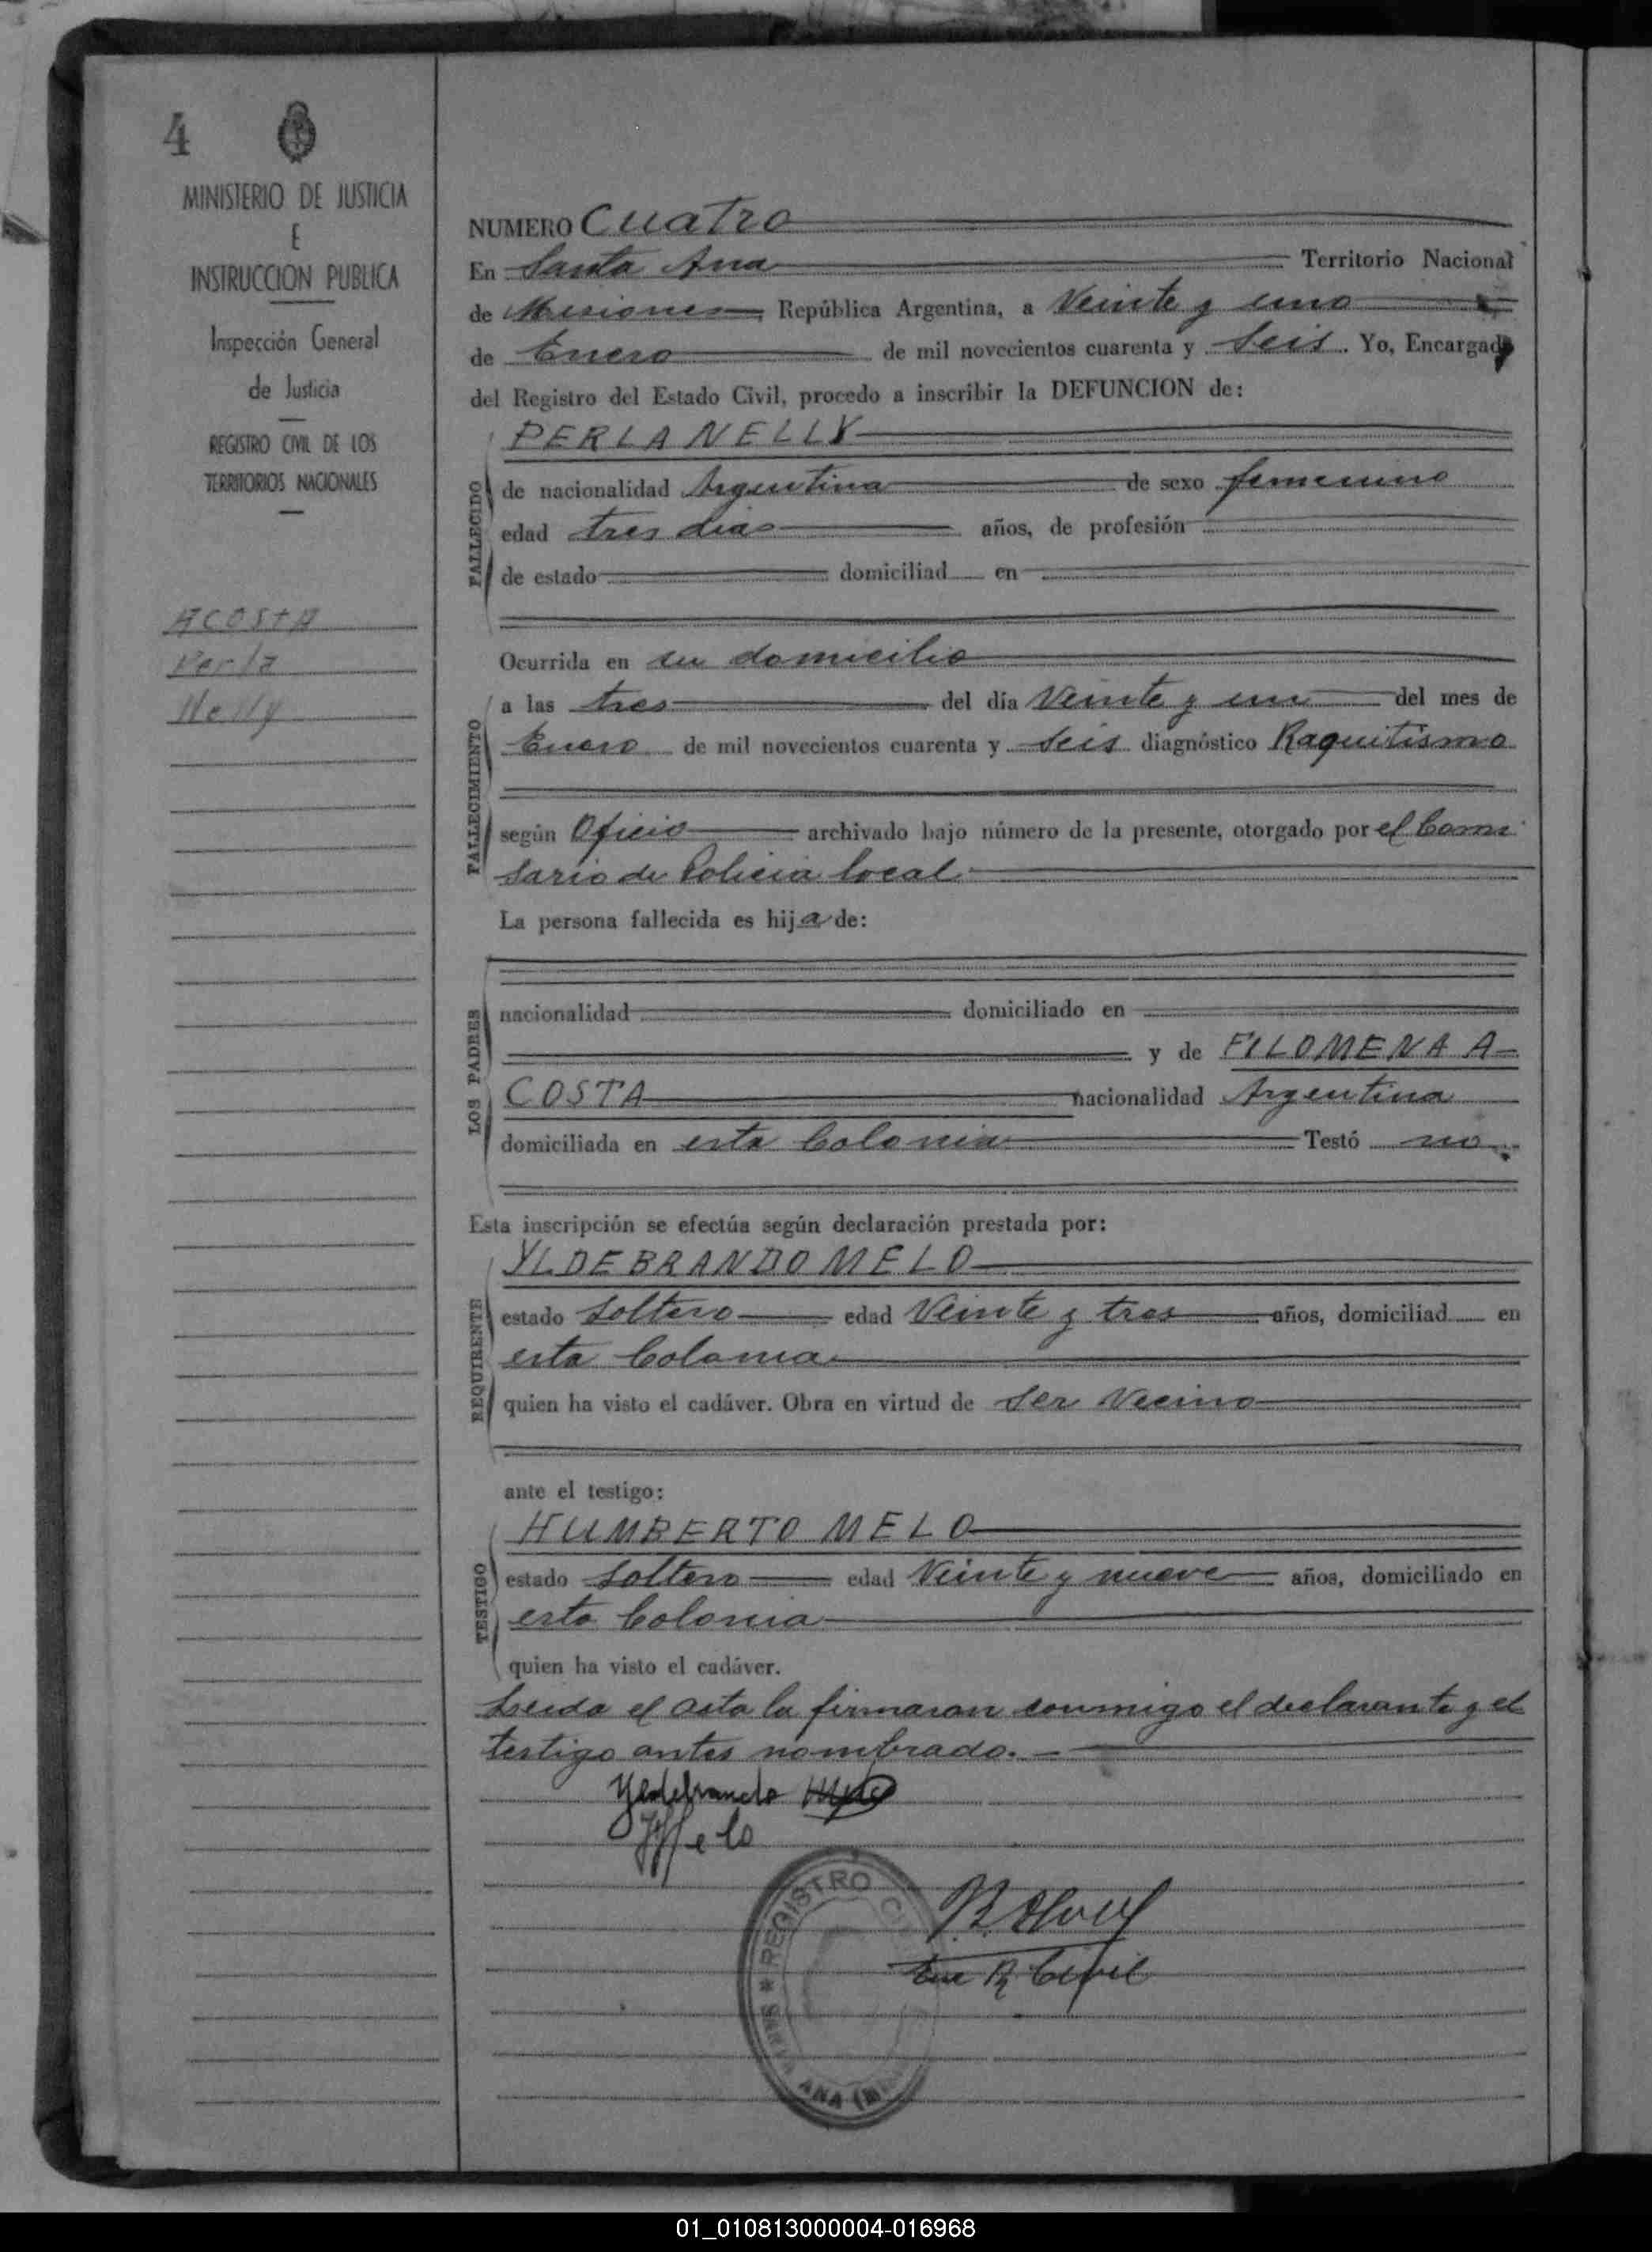 4
MINISTERIO DE JUSTICIA
E
INSTRUCCION PUBLICA
Inspección General
de Justicia
REGISTRO CIVIL DE LOS
TERRITORIOS NACIONALES
ACOSTA
Perla
Nelly
NUMERO Cuatro
En Santa Ana Territorio Nacional
de Misiones, República Argentina, a Veinte y uno
de Enero de mil novecientos cuarenta y Seis. Yo, Encargado
del Registro del Estado Civil, procedo a inscribir la DEFUNCION de:
PERLA NELLY
FALLECIDO
de nacionalidad Argentina de sexo femenino
edad tres dias años, de profesión
de estado domiciliad en
Ocurrida en su domicilio
FALLECIMIENTO
a las tres del día Veinte y un del mes de
Enero de mil novecientos cuarenta y Seis diagnóstico Raquitismo
según Oficio archivado bajo número de la presente, otorgado por el Comi
sario de Policia local
La persona fallecida es hija de:
LOS PADRES
nacionalidad domiciliado en
y de FILOMENA A-
COSTA nacionalidad Argentina
domiciliada en esta Colonia Testó no
Esta inscripción se efectúa según declaración prestada por:
YLDEBRANDO MELO
REQUIRENTE
estado Soltero edad Veinte y tres años, domiciliad en
esta Colonia
quien ha visto el cadáver. Obra en virtud de Ser Vecino
ante el testigo:
HUMBERTO MELO
TESTIGO
estado Soltero edad Veinte y nueve años, domiciliado en
esta Colonia
quien ha visto el cadáver.
Leida el acta la firmaron conmigo el declarante y el
testigo antes nombrado.-
Yldebrando Melo
HMelo
REGISTRO
SANTA ANA
Enc R Civil
01_010813000004-016968